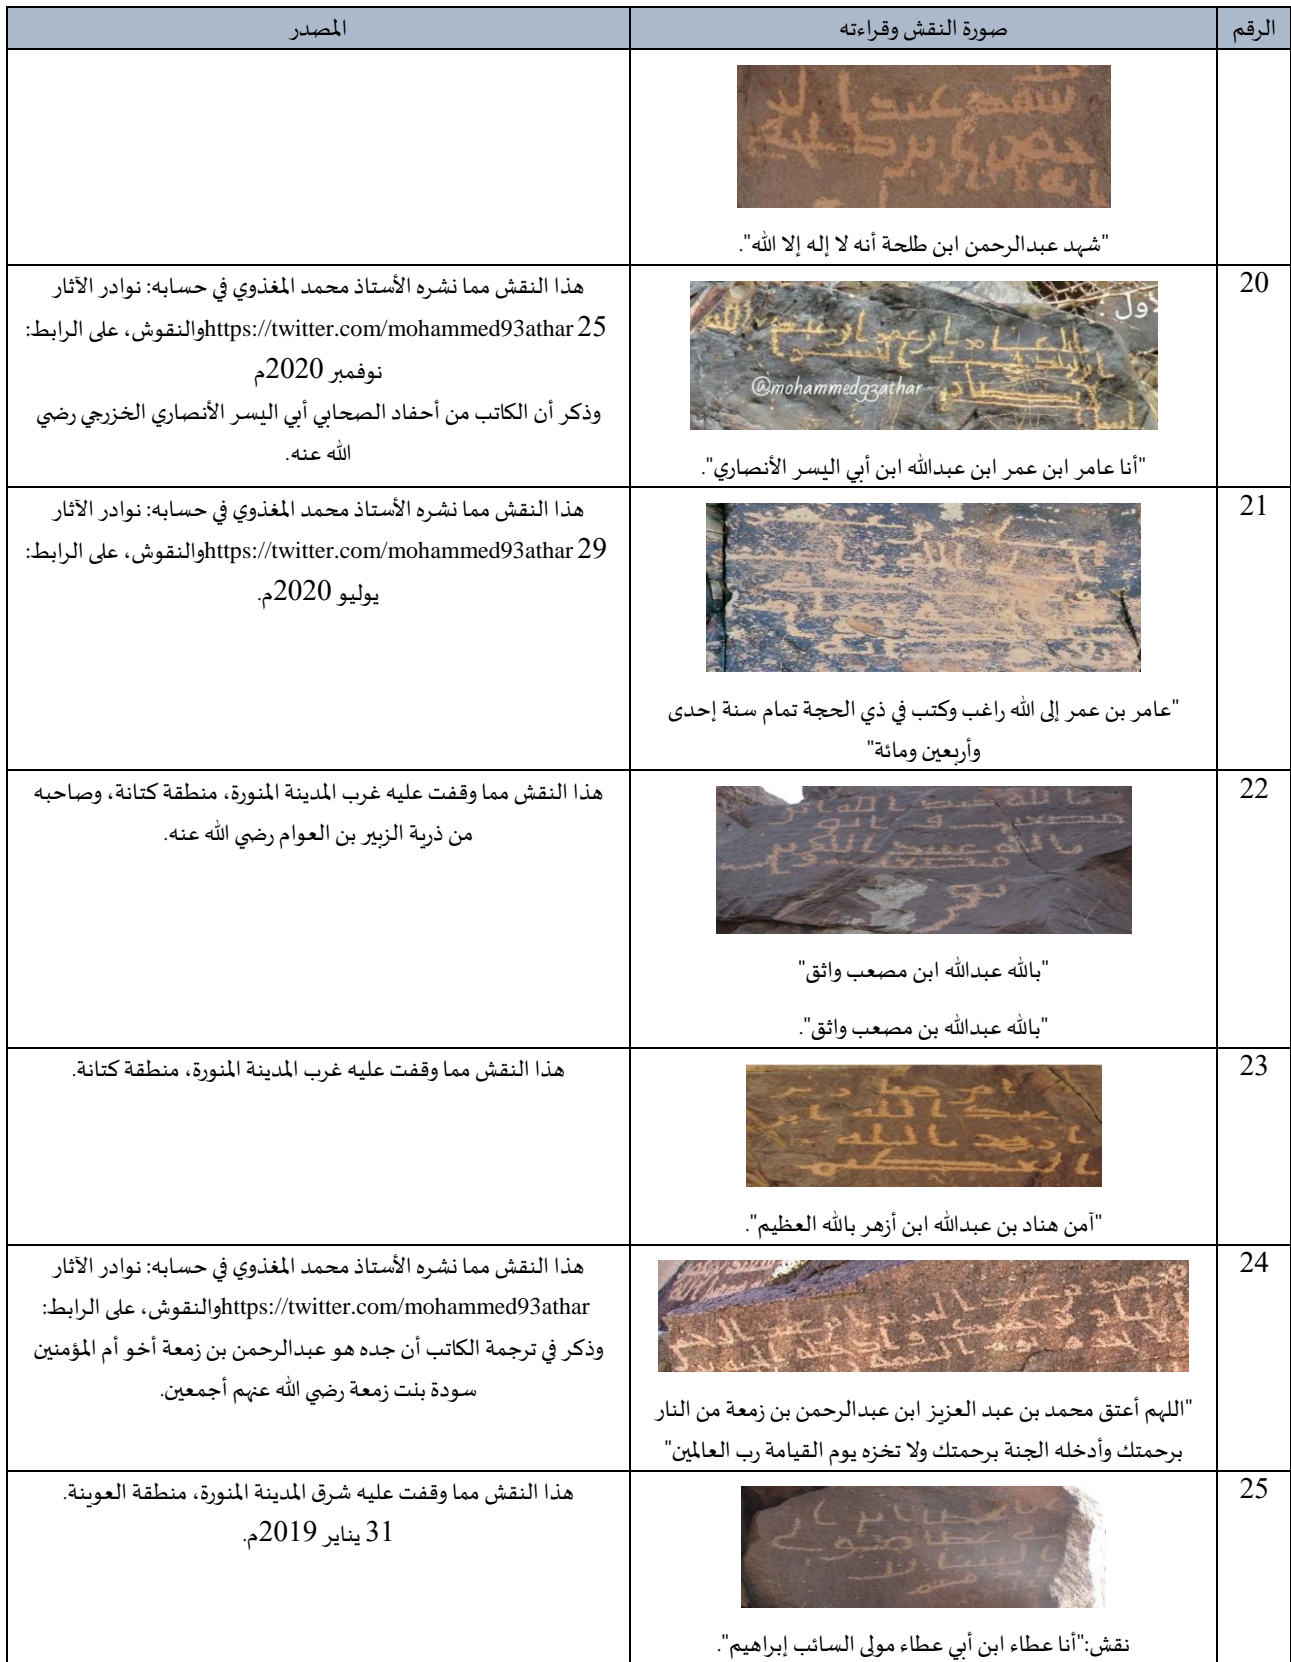 الرقم
صورة النقش وقراءته
المصدر
"شهد عبدالرحمن ابن طلحة أنه لا إله إلا الله".
20
اول :
@mohammed93athar
"أنا عامر ابن عمر ابن عبدالله ابن أبي اليسر الأنصاري".
هذا النقش مما نشره الأستاذ محمد المغذوي في حسابه: نوادر الآثار
والنقوش، على الرابط: https://twitter.com/mohammed93athar 25
نوفمبر 2020م
وذكر أن الكاتب من أحفاد الصحابي أبي اليسر الأنصاري الخزرجي رضي
الله عنه.
21
"عامر بن عمر إلى الله راغب وكتب في ذي الحجة تمام سنة إحدى
وأربعين ومائة"
هذا النقش مما نشره الأستاذ محمد المغذوي في حسابه: نوادر الآثار
والنقوش، على الرابط: https://twitter.com/mohammed93athar 29
يوليو 2020م.
22
"بالله عبدالله ابن مصعب واثق"
"بالله عبدالله بن مصعب واثق".
هذا النقش مما وقفت عليه غرب المدينة المنورة، منطقة كتانة، وصاحبه
من ذرية الزبير بن العوام رضي الله عنه.
23
"آمن هناد بن عبدالله ابن أزهر بالله العظيم".
هذا النقش مما وقفت عليه غرب المدينة المنورة، منطقة كتانة.
24
"اللهم أعتق محمد بن عبد العزيز ابن عبدالرحمن بن زمعة من النار
برحمتك وأدخله الجنة برحمتك ولا تخزه يوم القيامة رب العالمين"
هذا النقش مما نشره الأستاذ محمد المغذوي في حسابه: نوادر الآثار
والنقوش، على الرابط: https://twitter.com/mohammed93athar
وذكر في ترجمة الكاتب أن جده هو عبدالرحمن بن زمعة أخو أم المؤمنين
سودة بنت زمعة رضي الله عنهم أجمعين.
25
نقش:"أنا عطاء ابن أبي عطاء مولى السائب إبراهيم".
هذا النقش مما وقفت عليه شرق المدينة المنورة، منطقة العوينة.
31 يناير 2019م.